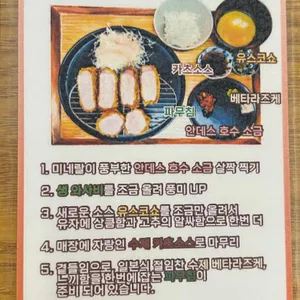 유즈코쇼
카츠소스
베타라즈케
파무침
안데스 호수 소금
1. 미네랄이 풍부한 안데스 호수 소금 살짝 찍기
2. 생 와사비를 조금 올려 풍미 UP
3. 새로운 소스 유즈코쇼를 조금만 올려서
유자에 상큼함과 고추의 알싸함으로 한번 더
4. 매장에 자랑인 수제 카츠소스로 마무리
5. 곁들임으로, 일본식 절임찬 수제 베타라즈케,
느끼함을 한번에 잡는 파무침이
준비 되어 있습니다.